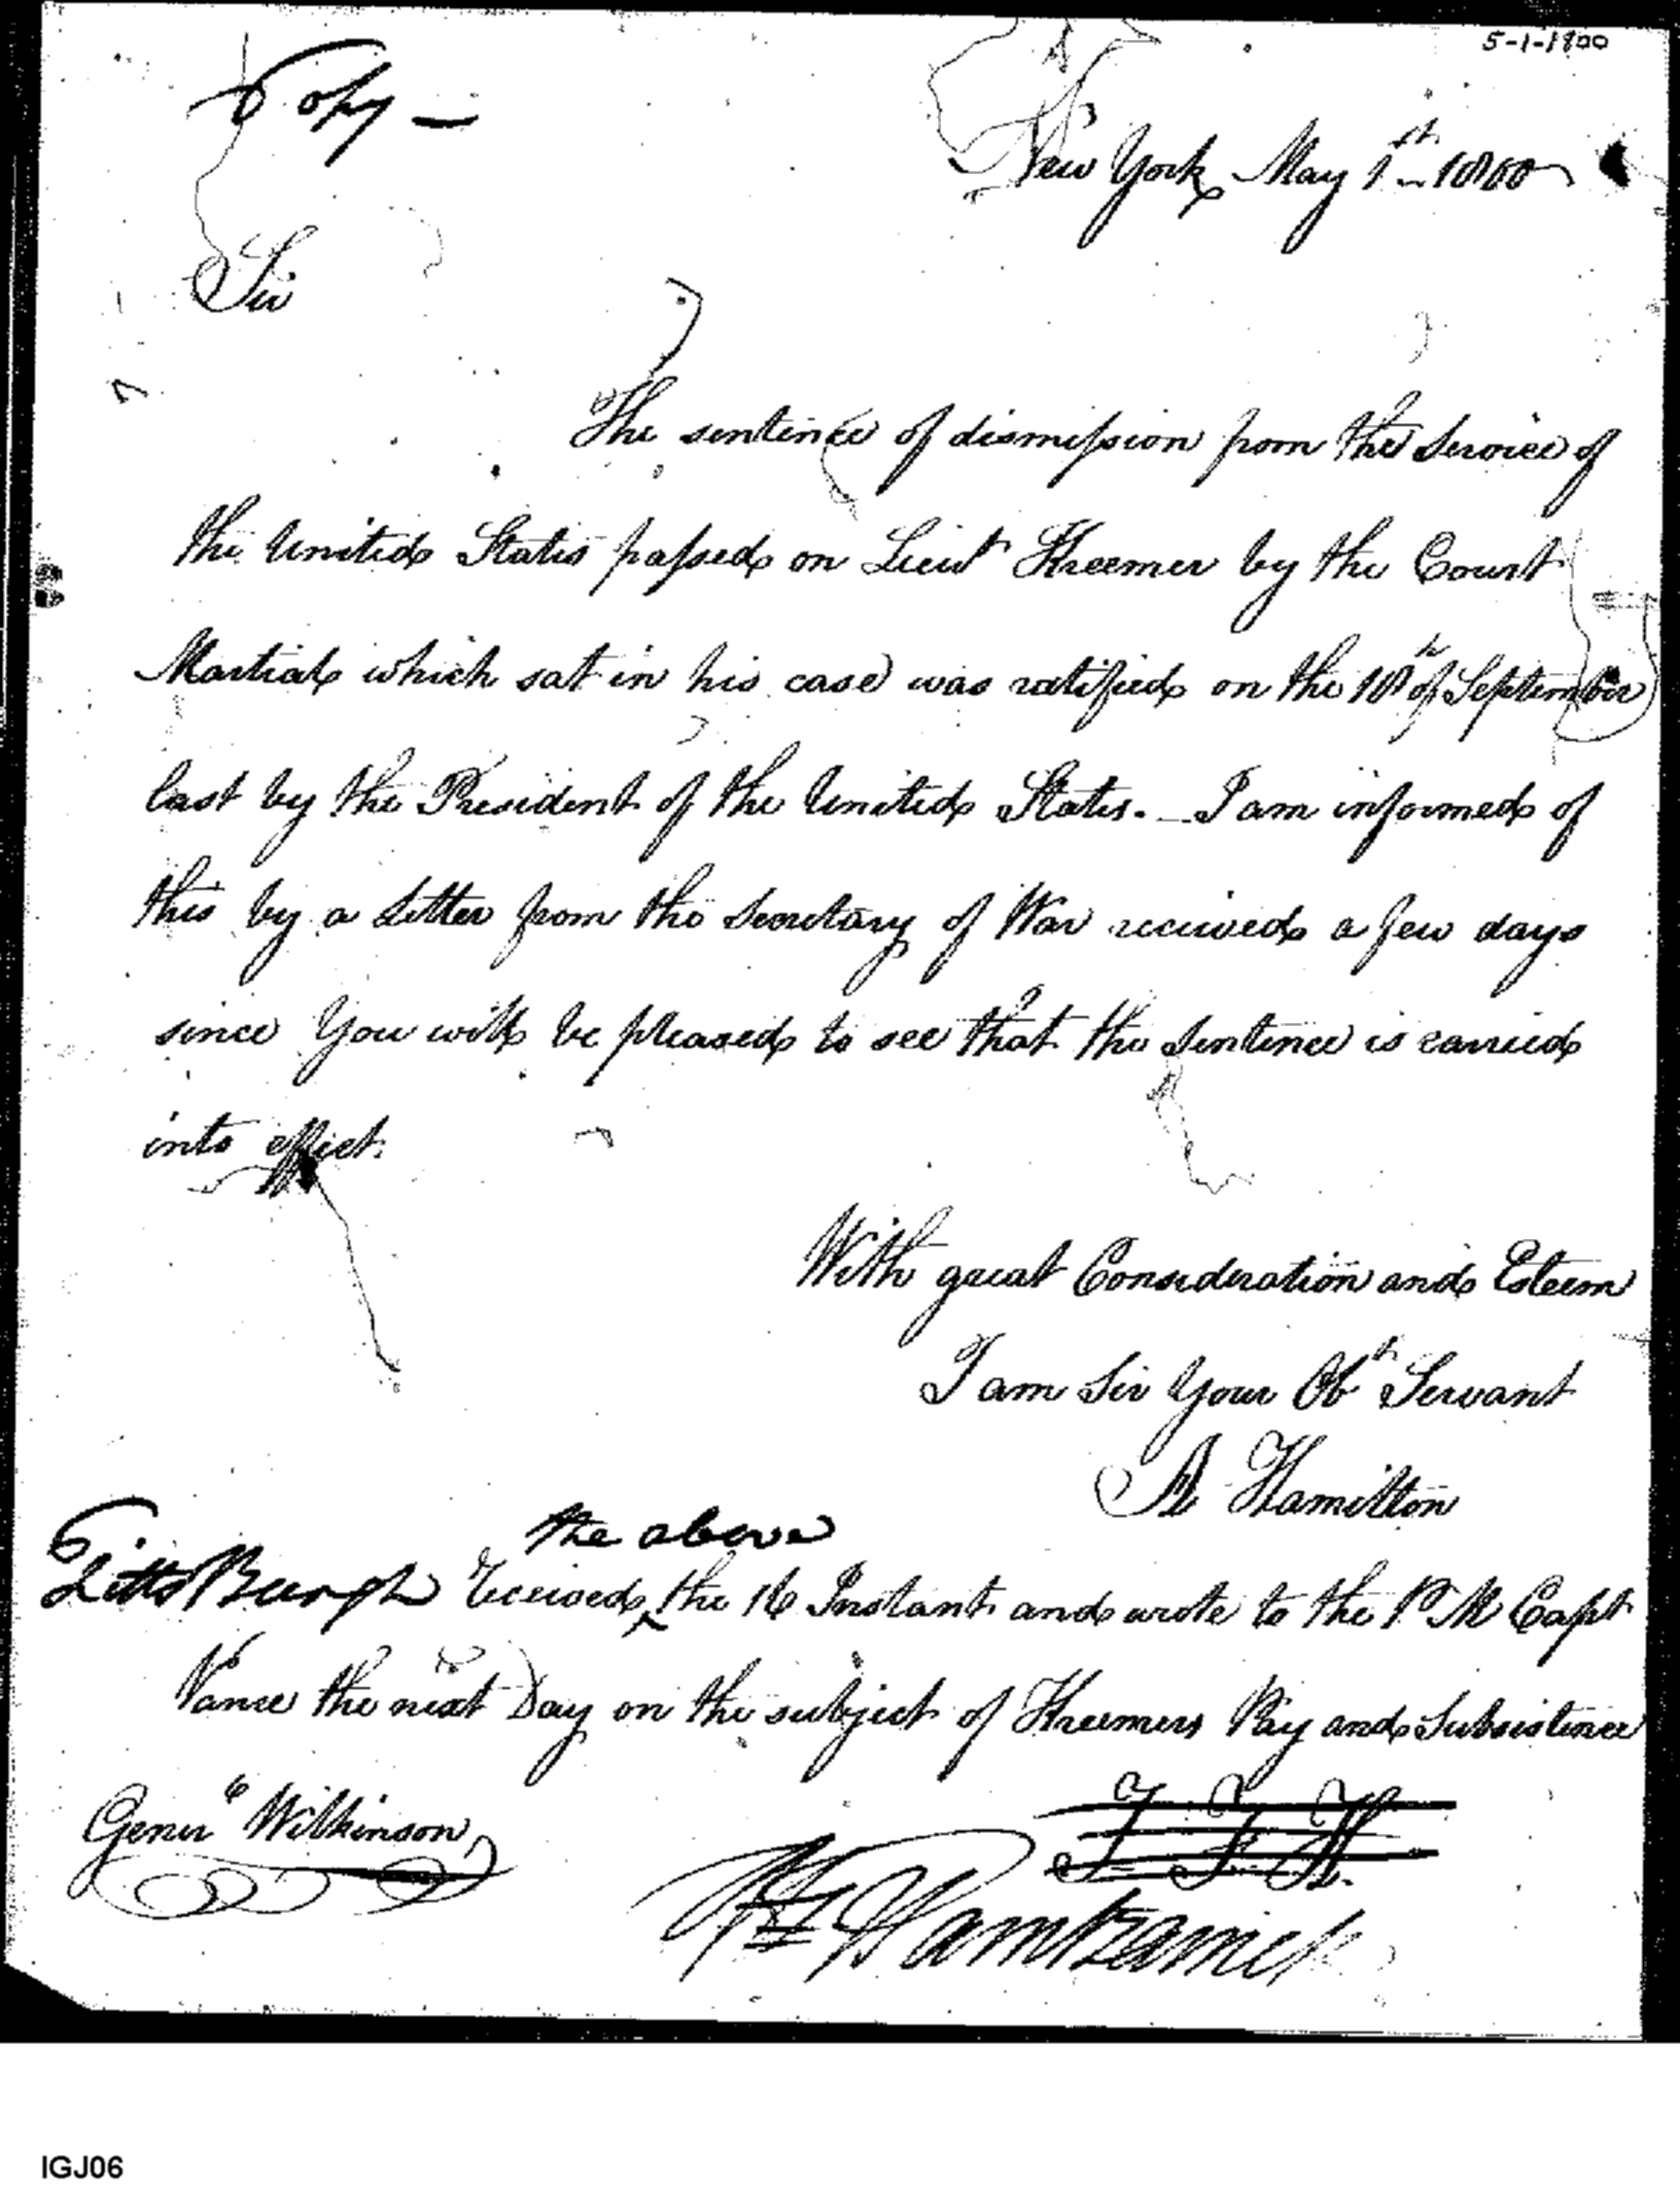 5-1-1800
Copy —
New York May 1st – 1800
Sir
The sentence of dismission from the Service of
the United States passed on Lieut Kreemer by the Court
Martial which sat in his case was ratified on the 18th of September
last by the President of the United States. – I am informed of
this by a Letter from the Secretary of War received a few days
since You will be pleased to see that the Sentence is carried
into effect.
With great Consideration and Esteem
I am Sir Your Obt Servant
A Hamilton
the above
PittsBurgh Received ^ the 16 Instant and wrote to the P M Capt
Vance the next Day on the subject of Kreemers Pay and Subsistence
Generl Wilkinson
J F H.
JF Hamtramck
IGJ06